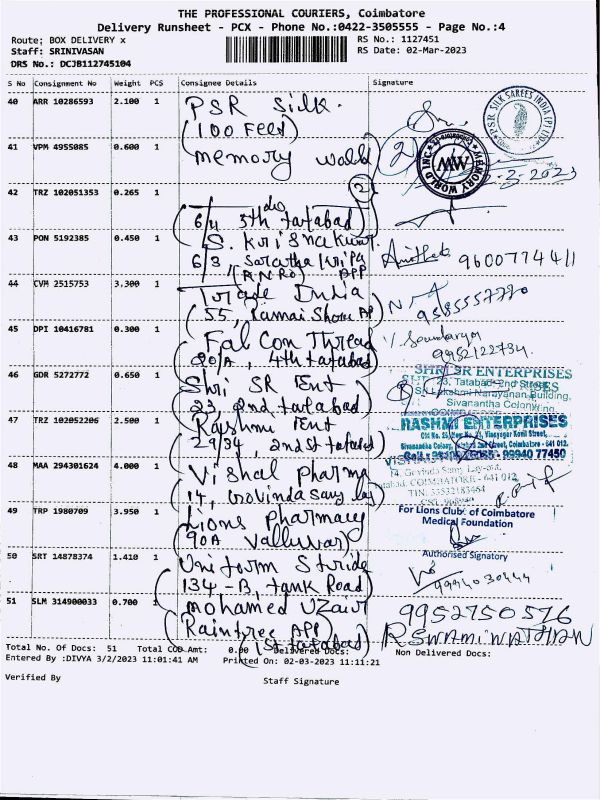 THE PROFESSIONAL COURIERS, Coimbatore
Delivery Runsheet - PCX - Phone No.:0422-3505555 - Page No.:4
Route; BOX DELIVERY x
RS No.: 1127451
Staff: SRINIVASAN
RS Date: 02-Mar-2023
DRS No.: DCJB112745104
S No Consignment No Weight PCS Consignee Details Signature
40 ARR 10286593 2.100 1 PSR Silk.
(100 Feet)
PSR SILK SAREES INDIA (P) LTD
41 VPM 4955085 0.600 1 memory world
(2)
MEMORY WORLD INC
MW
42 TRZ 102051353 0.265 1
(6/4 5th tatabad)
43 PON 5192385 0.450 1 S. Krishnakumar
6/3,
APP
9600774411
44 CVM 2515753 3.300 1 Trade India
(55, Ramai Shore AP)
9585557770
45 DPI 10416781 0.300 1 Fal Con Thread
(80/A, 4th tatabad)
V. Soundarya
9952122734.
46 GDR 5272772 0.650 1 Shri SR Ent
(23, 2nd tatabad)
SHRI SR ENTERPRISES
23, Tatabad 2nd Street,
Lakshmi Narayanan Building,
Sivanantha Colony
47 TRZ 102052206 2.500 1 Rashmi Ent
(29/34, 2nd St tatabad)
RASHMI ENTERPRISES
Sivanantha Colony, Tatabad 2nd Street, Coimbatore - 641 012.
99940 77450
48 MAA 294301624 4.000 1 Vishal Pharma
(14, Govinda Samy lay)
14, Govinda Samy Lay-out,
Tatabad, COIMBATORE - 641 012
49 TRP 1980709 3.950 1 Lions Pharmacy
(90A Valluvar)
For Lions Club of Coimbatore
Medical Foundation
Authorised Signatory
50 SRT 14878374 1.410 1 Uniform Stride
(134-B, tank Road)
9994030444
51 SLM 314900033 0.700 1 mohamed Uzair
(Raintree APP
(1st tatabad)
9952750576
RSWAMINATHAN
Total No. Of Docs: 51 Total COD Amt: 0.00 Delivered Docs: Non Delivered Docs:
Entered By :DIVYA 3/2/2023 11:01:41 AM Printed On: 02-03-2023 11:11:21
Verified By
Staff Signature